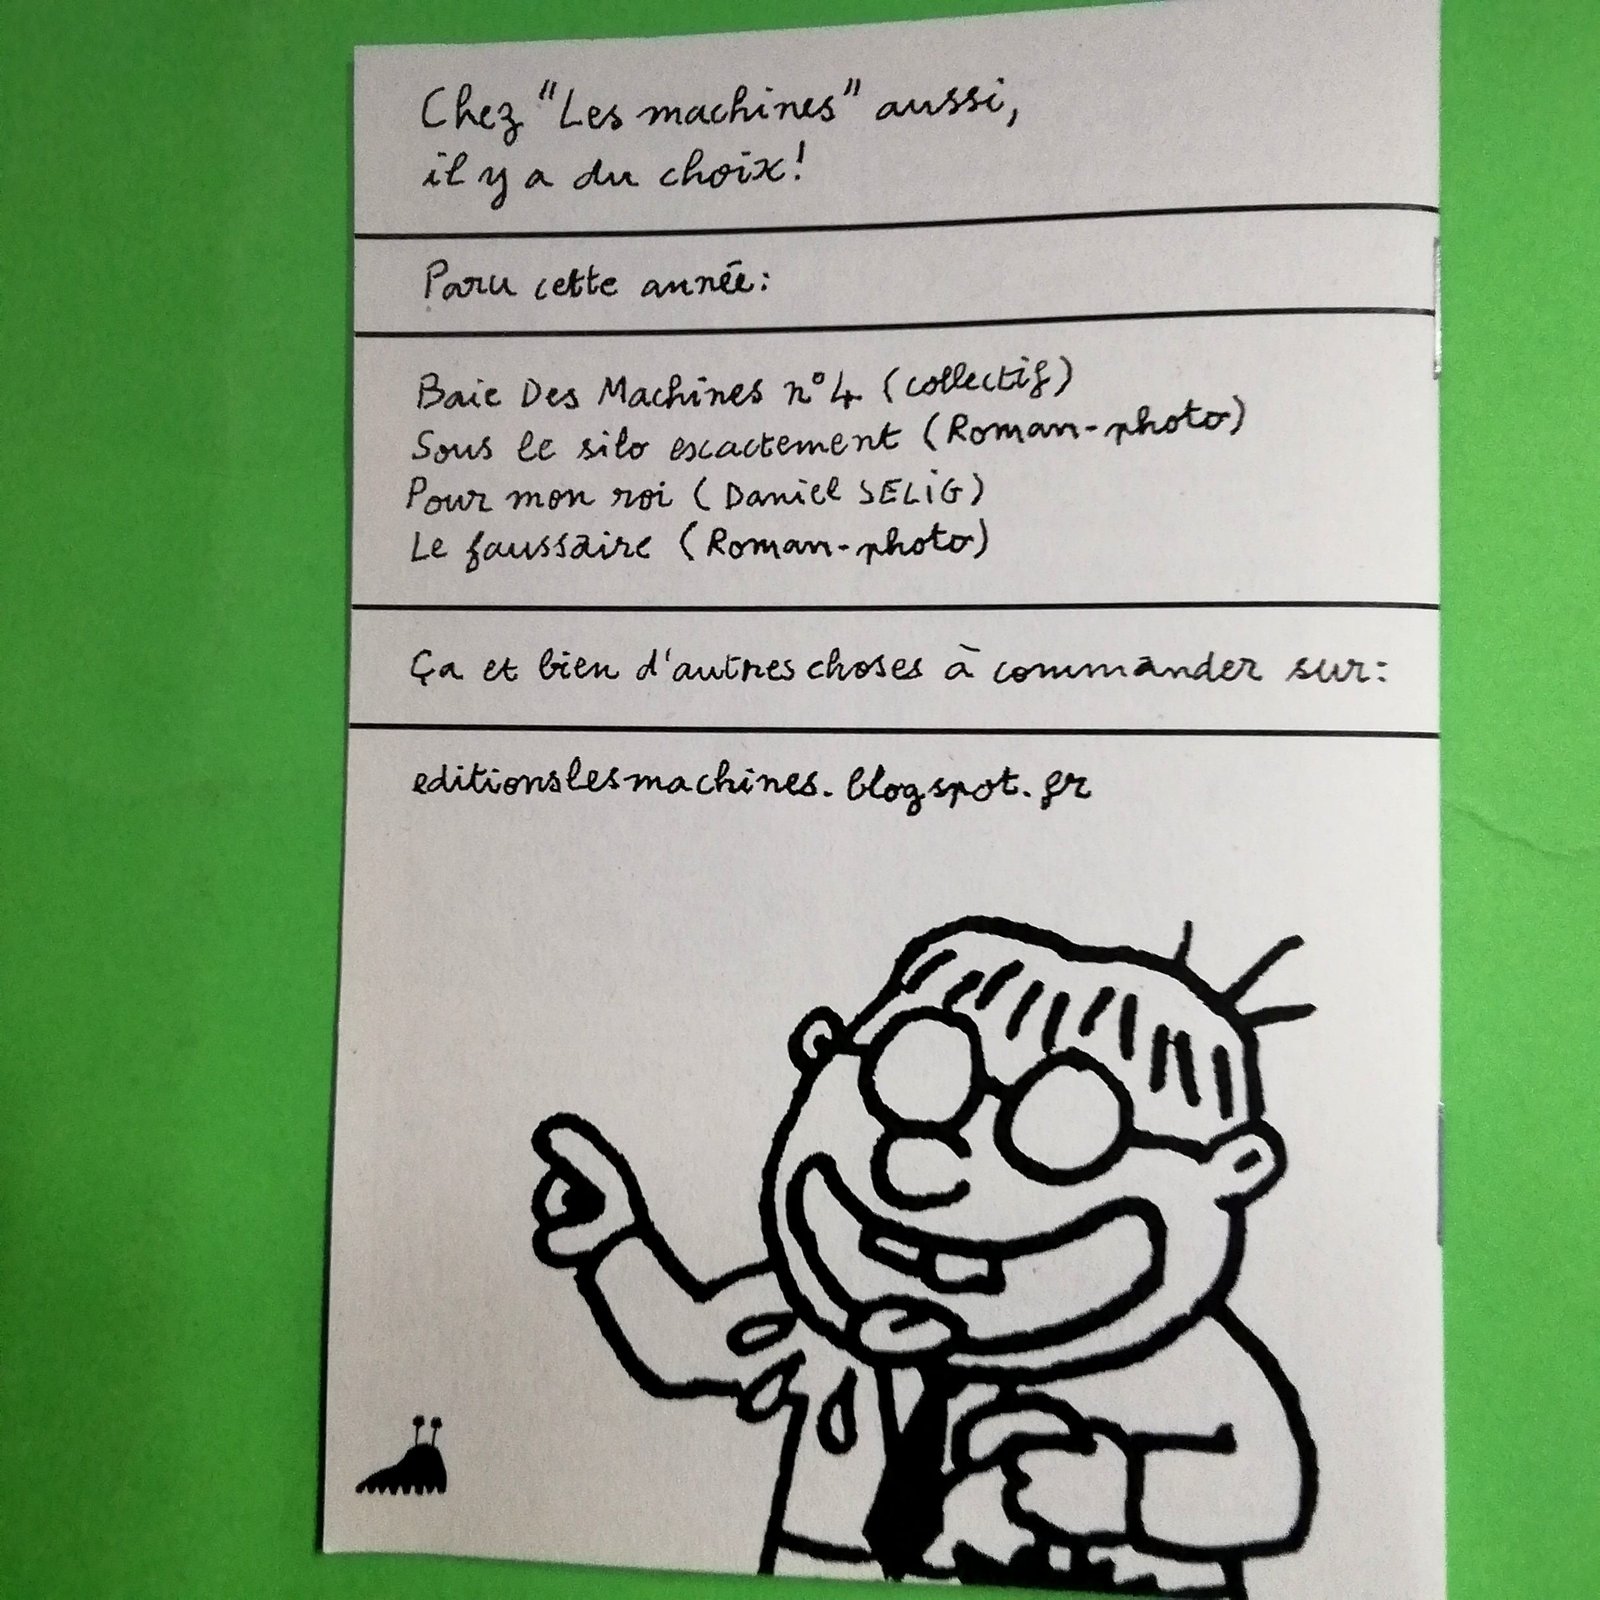 Chez "Les machines" aussi,
il y a du choix!
Paru cette année:
Baie Des Machines n°4 (collectif)
Sous le silo exactement (Roman-photo)
Pour mon roi (Daniel SELIG)
Le faussaire (Roman-photo)
Ça et bien d'autres choses à commander sur:
editionslesmachines.blogspot.fr